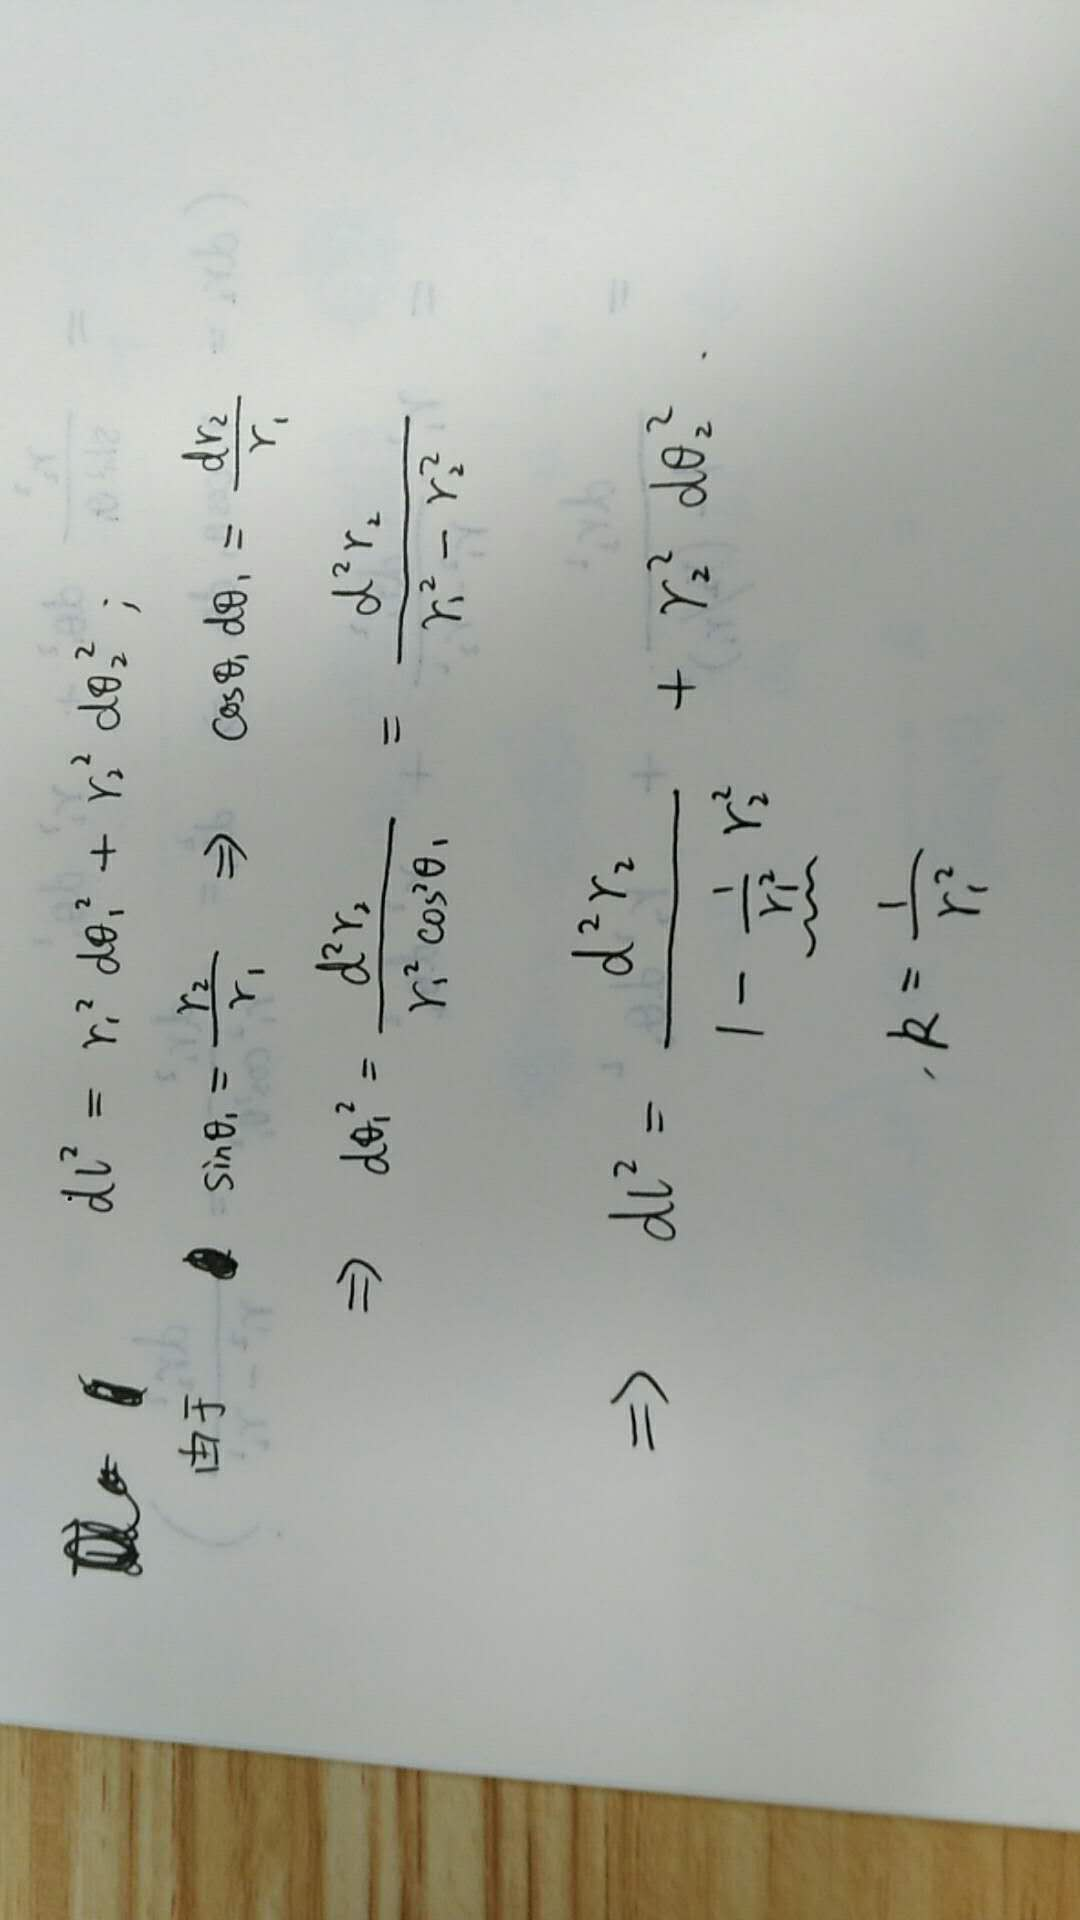 dl² = r₁² dθ₁² + r₂² dθ₂² ;
由于 sinθ₁ = r₂/r₁ ⇒ cosθ₁ dθ₁ = dr₂/r₁
⇒ dθ₁² = d²r₂/(r₁² cos²θ₁) = d²r₂/(r₁² − r₂²)
⇒ dl² = d²r₂/(1 − (1/r₁²) r₂²) + r₂² dθ₂² .
, k = 1/r₁²